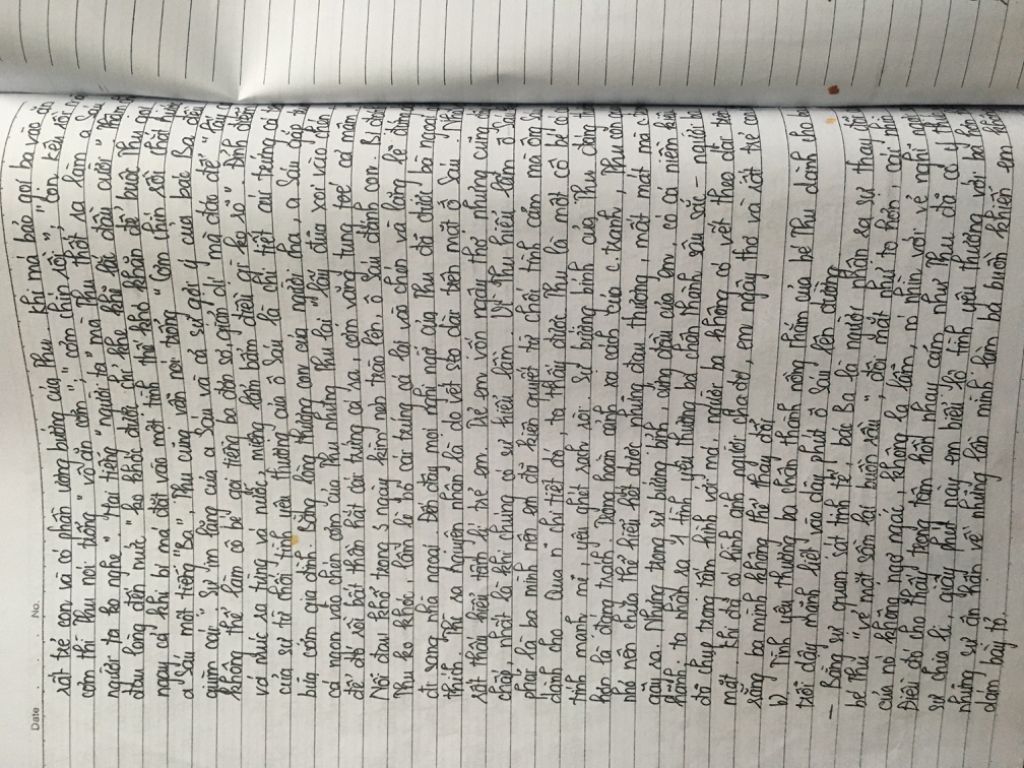 Date No.
rất trẻ con và có phần ương bướng của Thu. Khi má bảo gọi ba vào ăn
cơm thì Thu nói trổng "vô ăn cơm", "cơm chín rồi", "con kêu rồi mà
người ta ko nghe". Hai tiếng "người ta" mà Thu thốt ra làm a Sáu
đau lòng đến mức "ko khóc được, chỉ khe khẽ lắc đầu cười". Thậm chí
ngay cả khi bị má đặt vào một tình thế khó khăn để buộc Thu gọi
a Sáu một tiếng "Ba", Thu cũng vẫn nói trổng "Cơm chín rồi! nhão
giùm cái". Sự im lặng của a Sáu và cả sự gợi ý của bác Ba đều
không thể làm cô bé gọi tiếng ba đơn sơ, giản dị mà dùng để "lấy
vá múc ra từng vá nước, miệng lẩm bẩm điều gì ko rõ". Đỉnh điểm
của sự từ chối tình yêu thương của ô Sáu là chi tiết cái trứng cá trong
bữa cơm gia đình. Bằng lòng thương con của người cha, a Sáu gắp trứng cá
to ngon vào chén cơm của Thu nhưng Thu lại "lấy đũa xoi vào chén
để đó rồi bất thần hất cái trứng cá ra, cơm văng tung toé cả mâm".
Nỗi đau khổ trong 3 ngày kìm nén trào lên, ô Sáu đánh con. Bị đánh
Thu ko khóc, cầm lẽ bỏ cái trứng cá lại vô chén và lặng lẽ đứng
dt sang nhà ngoại. Đến đây mọi nghi ngờ của Thu đã được bà ngoại giải
thích. Thì ra nguyên nhân là do vết sẹo dài trên mặt ô Sáu. Nhà văn
rất thấu hiểu tâm lí trẻ em. Trẻ em vốn ngây thơ nhưng cũng đầy
chấp, nhất là khi chúng có sự hiểu lầm. Vì Thu hiểu lầm ô Sáu ko
phải là ba mình nên em đã kiên quyết từ chối tình cảm mà ông
dành cho. Qua n~ chi tiết đó, ta thấy được Thu là một cô bé cá
tính mạnh mẽ, yêu ghét rạch ròi. Sự bướng bỉnh của Thu đáng trách
hơn là đáng trách. Trong hoàn cảnh xa cách của c.tranh, Thu còn quá
nhỏ nên chưa thể hiểu hết được những đau thương, mất mát mà c.tranh
gây ra. Nhưng trong sự bướng bỉnh, cứng đầu của em, có cả niềm kiêu
hãnh. ta nhận ra 1 tình yêu thương ba chân thành, sâu sắc – người ba
đã chụp trong tấm hình với má, người ba không có vết thẹo dài trên
mặt. Khi đã có hình ảnh người cha đó, em ngây thơ và rất trẻ con
rằng ba mình không thể thay đổi.
b) Tình yêu thương ba chân thành nồng thắm của bé Thu dành cho ba
trỗi dậy mãnh liệt vào giây phút ô Sáu lên đường.
– Bằng sự quan sát tinh tế, bác Ba là người nhận ra sự thay đổi
bé Thu "vẻ mặt sầm lại buồn rầu", "đôi mắt như to hơn, cái nhìn
của nó không ngơ ngác, không lạ lẫm, nó nhìn với vẻ nghĩ ngợi
Điều đó cho thấy trong tâm hồn nhạy cảm như Thu đã có ý thức
sự chia li, giây phút này em biểu lộ tình yêu thương với ba
nhưng sự ân hận về những lần mình làm ba buồn khiến em không
dám bày tỏ.